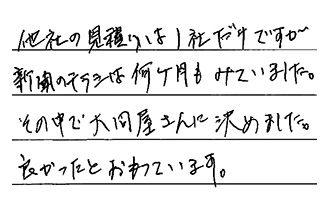 他社の見積りは1社だけですが
新聞のチラシは何ケ月もみていました。
その中で大岡屋さんに決めました。
良かったとおもっています。